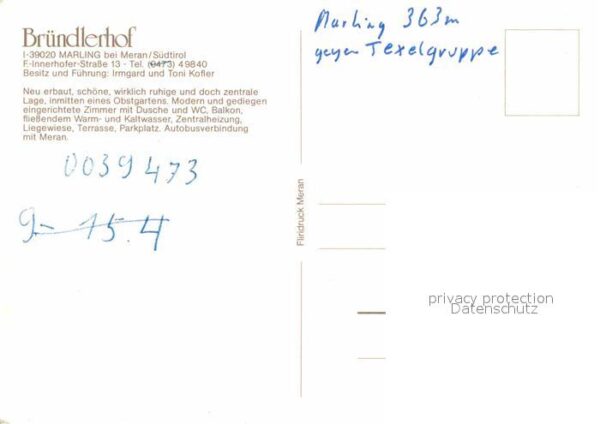 Bründlerhof
I-39020 MARLING bei Meran/Südtirol
F.-Innerhofer-Straße 13 - Tel. (0473) 49840
Besitz und Führung: Irmgard und Toni Kofler
Neu erbaut, schöne, wirklich ruhige und doch zentrale
Lage, inmitten eines Obstgartens. Modern und gediegen
eingerichtete Zimmer mit Dusche und WC, Balkon,
fließendem Warm- und Kaltwasser, Zentralheizung,
Liegewiese, Terrasse, Parkplatz. Autobusverbindung
mit Meran.
0039 473
9- 15.4
Flridruck Meran
Marling 363m
gegen Texelgruppe
privacy protection
Datenschutz